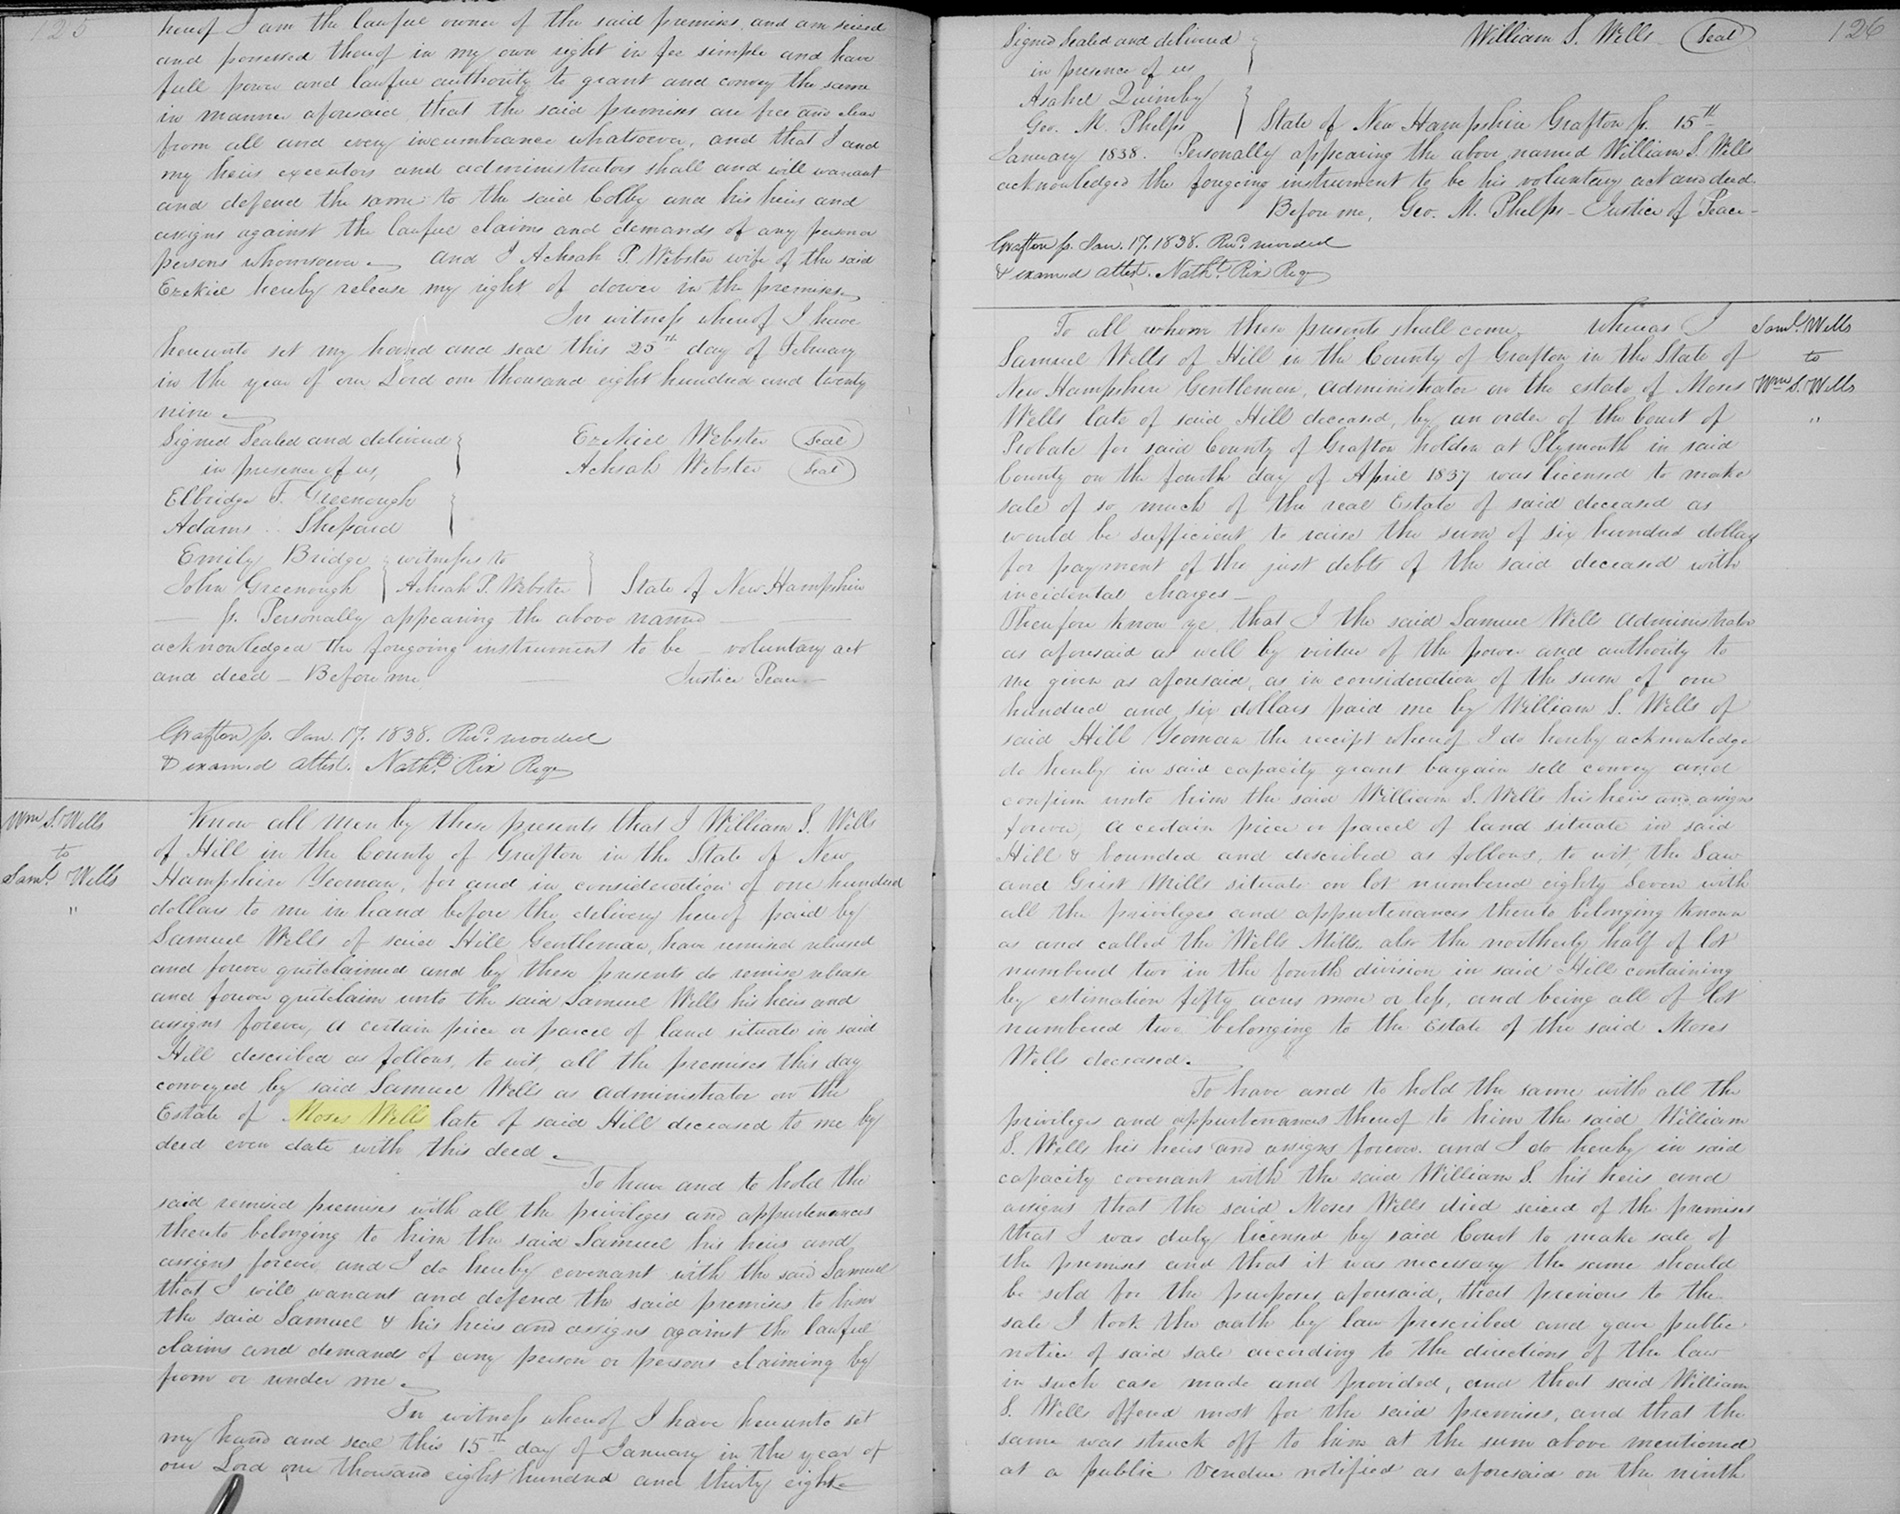 125
hereof I am the lawful owner of the said premises and am seized
and possessed thereof in my own right in fee simple and have
full power and lawful authority to grant and convey the same
in manner aforesaid, that the said premises are free and clear
from all and every incumbrance whatsoever, and that I and
my heirs executors and administrators shall and will warrant
and defend the same to the said Colby and his heirs and
assigns against the lawful claims and demands of any person or
persons whomsoever. and I Achsah P. Webster wife of the said
Ezekiel hereby release my right of dower in the premises
In witness whereof I have
hereunto set my hand and seal this 25th day of February
in the year of our Lord one thousand eight hundred and twenty
nine.
Signed Sealed and delivered Ezekiel Webster (Seal)
in presence of us, Achsah Webster (Seal)
Elbridge F. Greenough
Adams Shepard
Emily Bridge witnesses to
John Greenough Achsah P. Webster State of New Hampshire
ss. Personally appearing the above named
acknowledged the foregoing instrument to be voluntary act
and deed - Before me Justice Peace
Grafton ss. Jan. 17. 1838. Recd. recorded
& examined attest. Nathl. Rix Regr
Wm S. Wells
to
Saml. Wells
"
Know all men by these presents that I William S. Wells
of Hill in the County of Grafton in the State of New
Hampshire Yeoman, for and in consideration of one hundred
dollars to me in hand before the delivery hereof paid by
Samuel Wells of said Hill Gentleman, have remised released
and forever quitclaimed and by these presents do remise release
and forever quitclaim unto the said Samuel Wells his heirs and
assigns forever, a certain piece or parcel of land situate in said
Hill described as follows, to wit, all the premises this day
conveyed by said Samuel Wells as administrator on the
Estate of Moses Wells late of said Hill deceased to me by
deed even date with this deed.
To have and to hold the
said remised premises with all the privileges and appurtenances
thereto belonging to him the said Samuel his heirs and
assigns forever, and I do hereby covenant with the said Samuel
that I will warrant and defend the said premises to him
the said Samuel & his heirs and assigns against the lawful
claims and demands of any person or persons claiming by
from or under me.
In witness whereof I have hereunto set
my hand and seal this 15th day of January in the year of
our Lord one thousand eight hundred and thirty eight
126
Signed Sealed and delivered William S. Wells (Seal)
in presence of us
Asahel Quimby
Geo. M. Phelps State of New Hampshire Grafton ss. 15th
January 1838. Personally appearing the above named William S. Wells
acknowledged the foregoing instrument to be his voluntary act and deed.
Before me, Geo. M. Phelps - Justice of Peace -
Grafton ss. Jan. 17. 1838. Recd. recorded
& examined attest. Nathl. Rix Regr
Saml. Wells
to
Wm S. Wells
"
To all whom these presents shall come, whereas I
Samuel Wells of Hill in the County of Grafton in the State of
New Hampshire Gentleman, administrator on the estate of Moses
Wells late of said Hill deceased, by an order of the Court of
Probate for said County of Grafton holden at Plymouth in said
County on the fourth day of April 1837 was licensed to make
sale of so much of the real Estate of said deceased as
would be sufficient to raise the sum of six hundred dollars
for payment of the just debts of the said deceased with
incidental charges -
Therefore know ye, that I the said Samuel Wells administrator
as aforesaid as well by virtue of the power and authority to
me given as aforesaid, as in consideration of the sum of one
hundred and six dollars paid me by William S. Wells of
said Hill Yeoman the receipt whereof I do hereby acknowledge
do hereby in said capacity grant bargain sell convey and
confirm unto him the said William S. Wells his heirs and assigns
forever, a certain piece or parcel of land situate in said
Hill & bounded and described as follows, to wit, the Saw
and Grist Mills situate on lot numbered eighty seven with
all the privileges and appurtenances thereto belonging known
as and called the Wells Mills. also the northerly half of lot
numbered two in the fourth division in said Hill containing
by estimation fifty acres more or less, and being all of lot
numbered two belonging to the Estate of the said Moses
Wells deceased.
To have and to hold the same with all the
privileges and appurtenances thereof to him the said William
S. Wells his heirs and assigns forever. and I do hereby in said
capacity covenant with the said William S. his heirs and
assigns that the said Moses Wells died seized of the premises
that I was duly licensed by said Court to make sale of
the premises and that it was necessary the same should
be sold for the purposes aforesaid, that previous to the
sale I took the oath by law prescribed and gave public
notice of said sale according to the directions of the law
in such case made and provided, and that said William
S. Wells offered most for the said premises, and that the
same was struck off to him at the sum above mentioned
at a public Vendue notified as aforesaid on the ninth